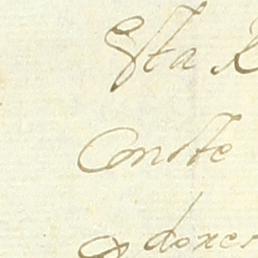 Esta R
Conste
doxes